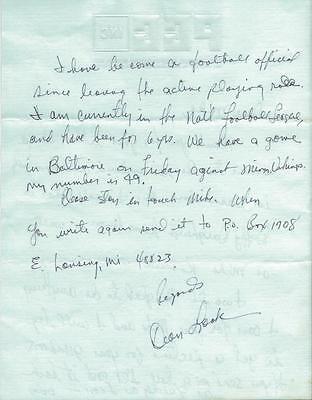 I have become a football official
since leaving the active playing role.
I am currently in the Nat'l Football League
and have been for 6 yrs. We have a game
in Baltimore on Friday against Minn. Vikings.
my number is 49.
Please stay in touch Mike. When
You write again send it to P.O. Box 1708
E. Lansing, Mi 48823.
Regards
Dean Look